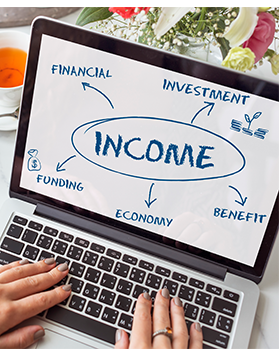 FINANCIAL
INVESTMENT
INCOME
FUNDING
ECONOMY
BENEFIT